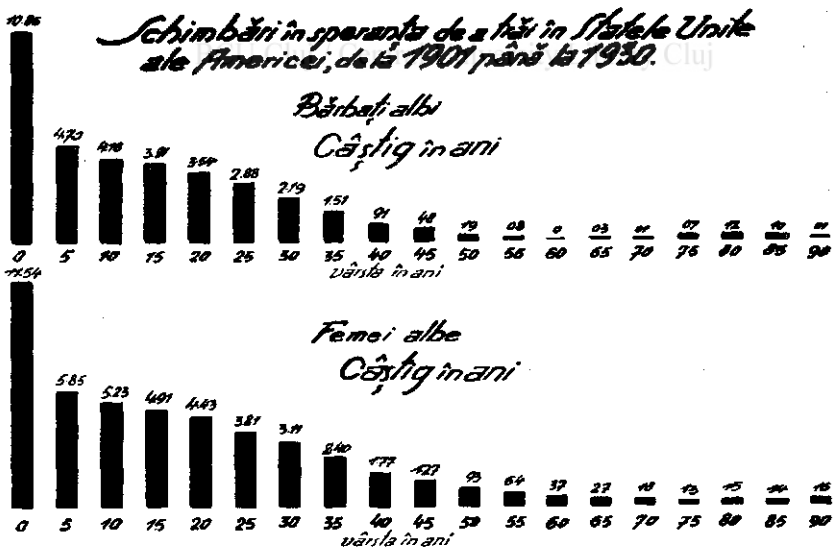 Schimbări în speranța de a trăi în Statele Unite
ale Americei, de la 1901 până la 1930.
Bărbați albi
Câștig în ani
10.86 4.70 4.18 2.88 2.19 1.51 91 48 19 08 0 03 01 07 12 10 01
0 5 10 15 20 25 30 35 40 45 50 55 60 65 70 75 80 85 90
vârsta în ani
Femei albe
Câștig în ani
11.54 5.85 5.23 4.91 4.43 3.81 3.11 2.40 1.77 1.27 93 64 37 27 18 13 15 14 16
0 5 10 15 20 25 30 35 40 45 50 55 60 65 70 75 80 85 90
vârsta în ani